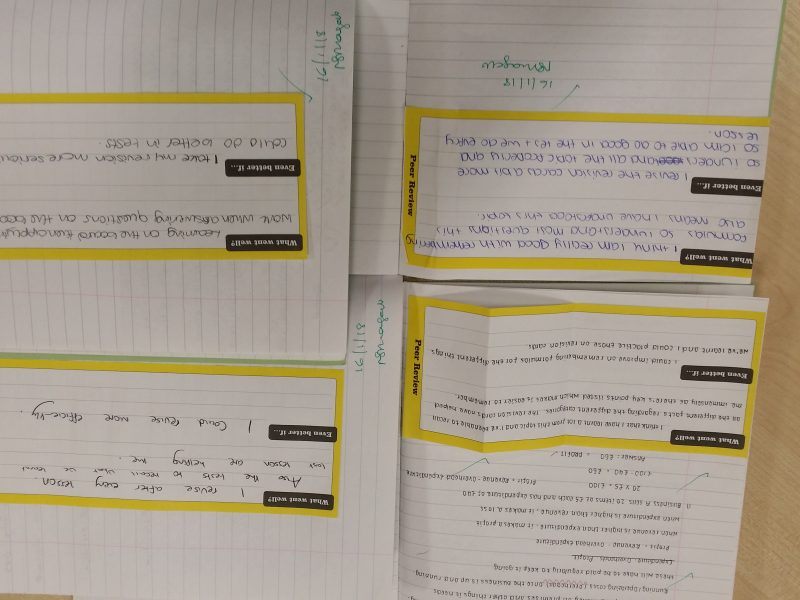 Running (operating costs (overheads) once the business is up and running
these will have to be paid regularly to keep is going
Expenditure Overheads Profit
Profit = Revenue - Overhead Expenditure
when revenue is higher than expenditure - it makes a profit
when expenditure is higher than revenue, it makes a loss
1) Business A sells 20 items at £5 each and has expenditure of £40
20 x £5 = £100 Profit = Revenue - Overhead Expenditure
£100 - £40 = £60
Answer: £60 = PROFIT
What went well?
I think that I have learnt a lot from this topic and I've been able to recall
as the different parts regarding the different categories. The revision cards have helped
me immensely as there's key points listed which makes is easier to remember.
Even better if...
I could improve on remembering formulas for the different things
we've learnt and I could practice those on revision cards.
Peer Review
What went well?
I revise after every lesson.
Also the tests to recall what we learnt
last lesson are helping me.
Even better if...
I could revise more
31/1/19
What went well?
I think I am really good with remembering
formulas so I understand most questions this
also means I have understood this topic.
Even better if...
I revise the revision cards a bit more
so I understand all the topic properly and
so I am able to do good in the test we do every
lesson.
Peer Review
16/1/18
What went well?
Learning on the board then
work when answering questions on the
Even better if...
I take my revision more
could do better in tests.
31/1/19